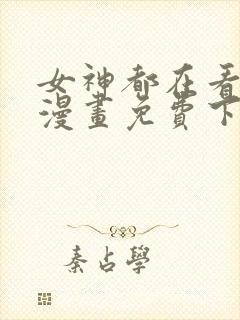 女神都在看
漫畫免費下
秦占學